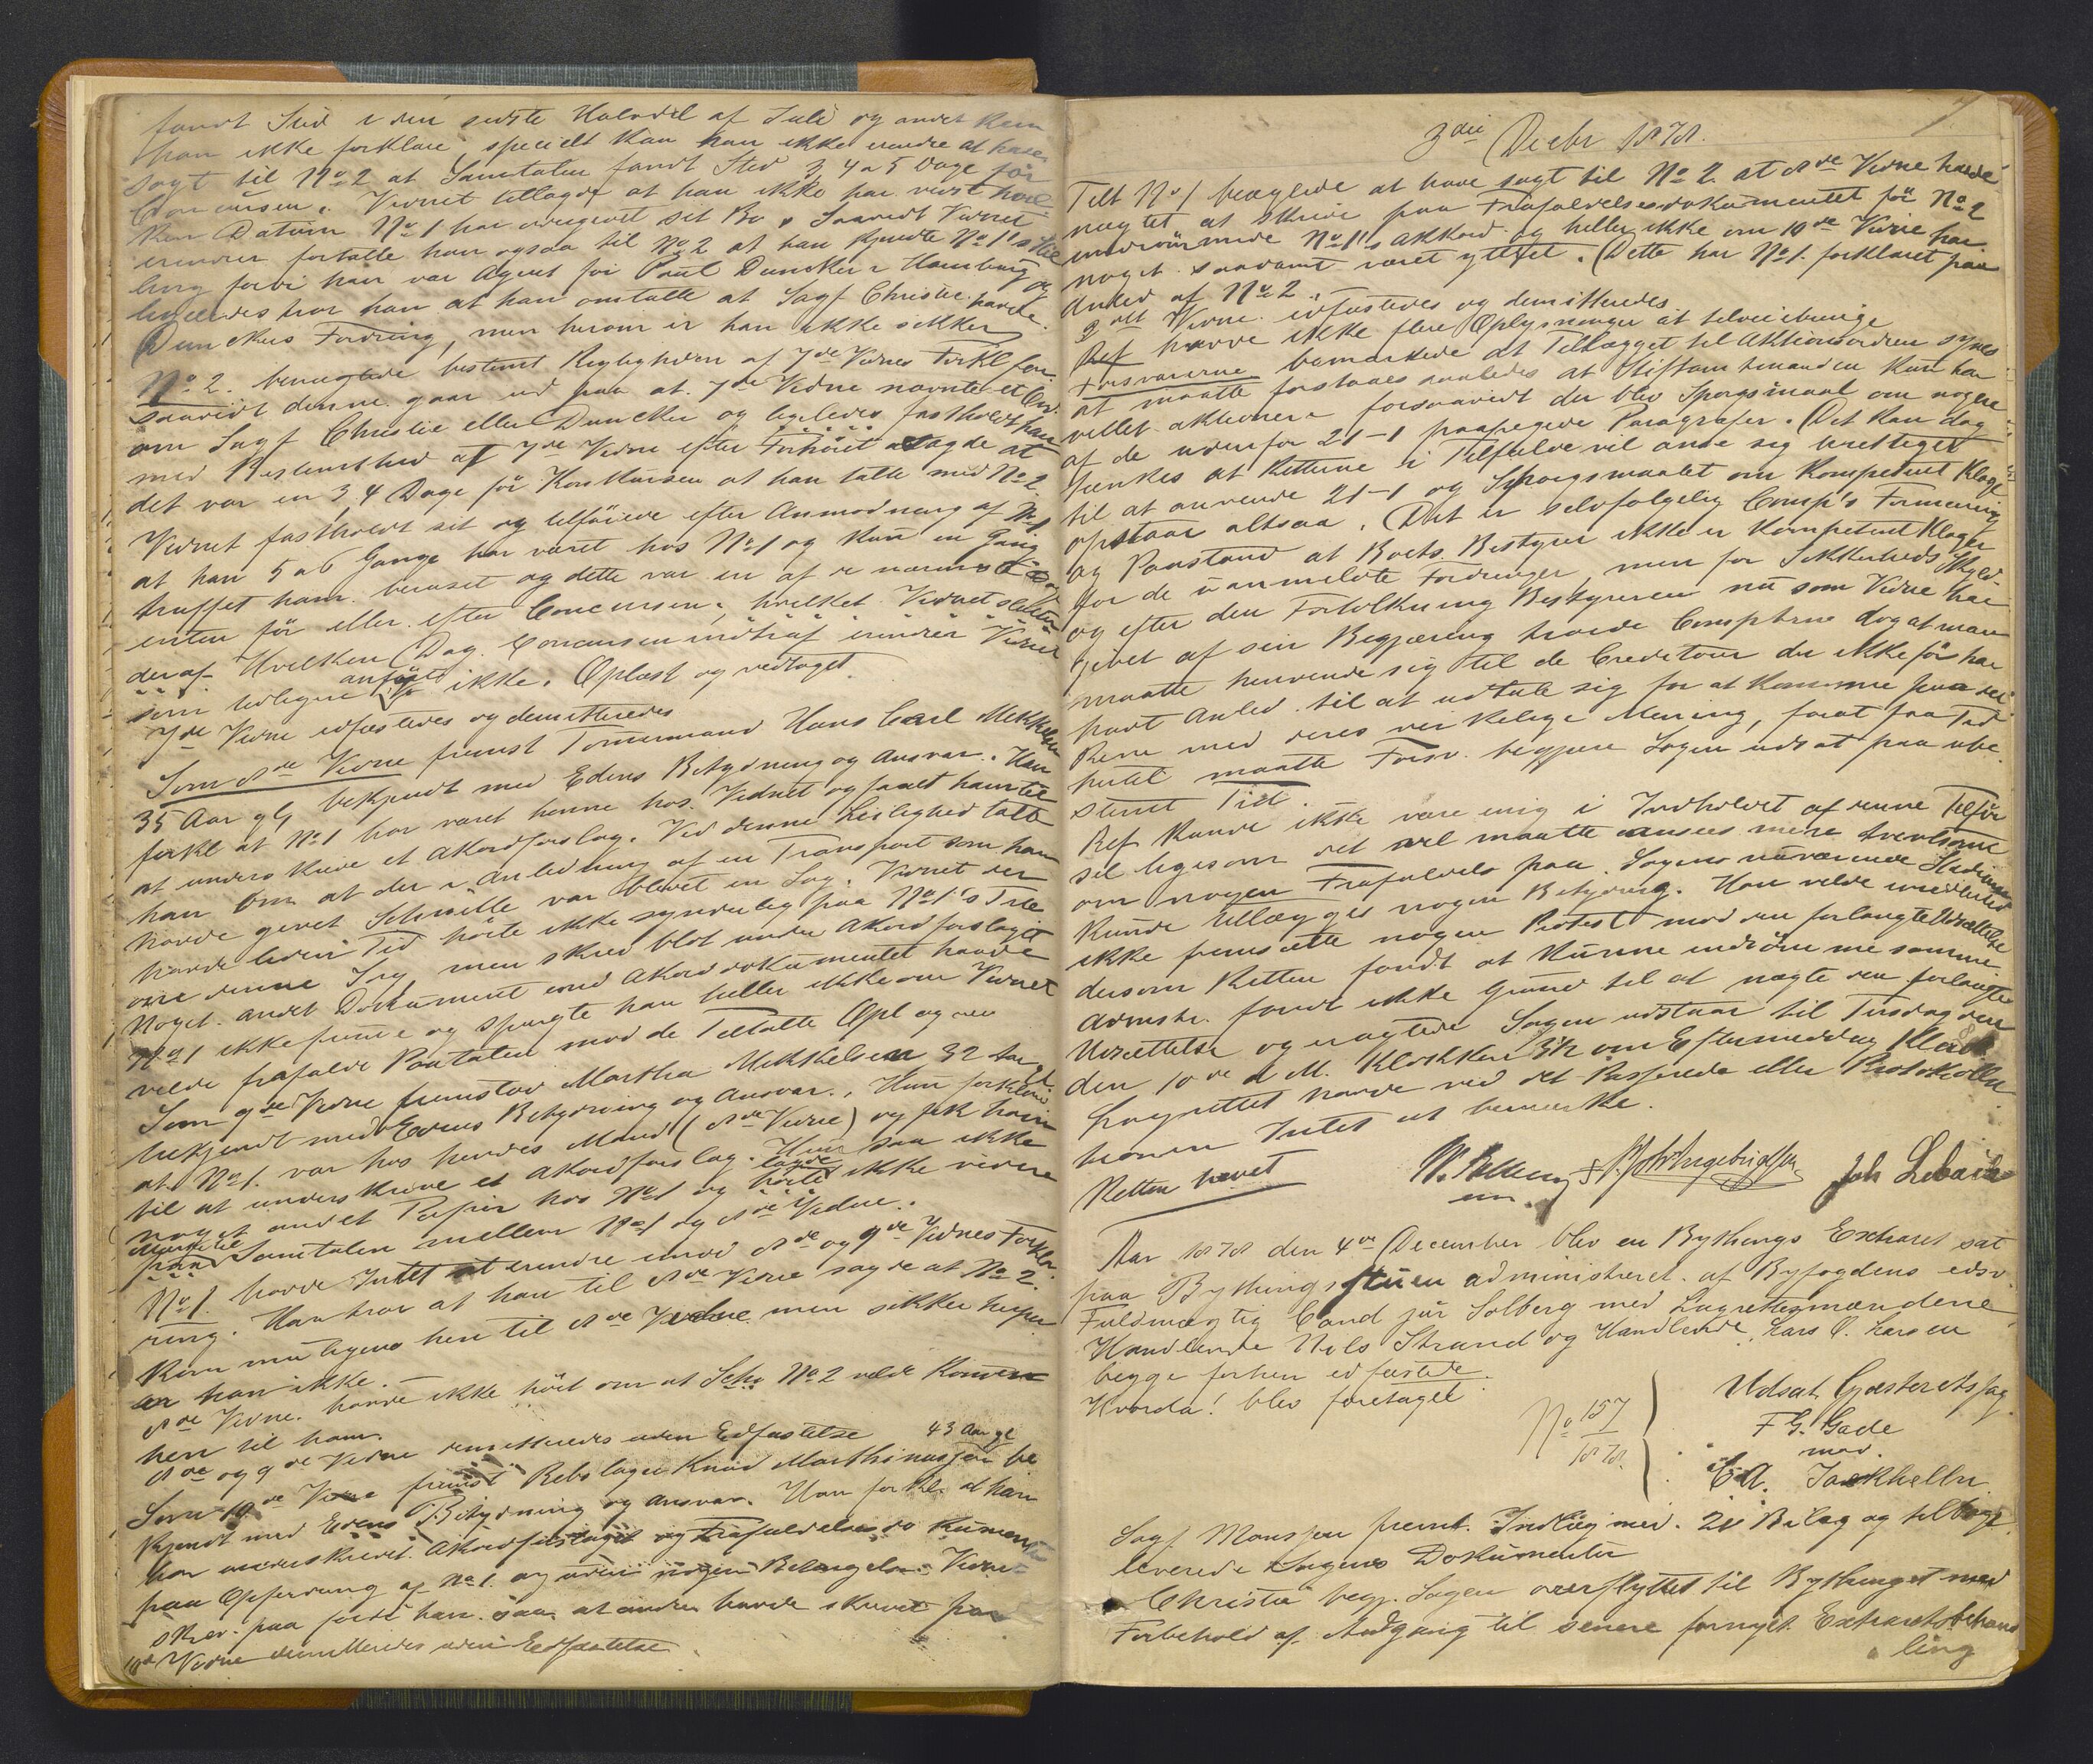 fandt Sted i den sidste Halvdel af Juli og andet kan
han ikke forklare specielt kan han ikke erindre at have
sagt til No 2 at Samtalen fandt Sted 3, 4 a 5 Dage før
Concursen. Vidnet tillagde at han ikke har vidst hvil-
ken Datum No 1 har opgivet sit Bo. Saavidt Vidnet
erindrer fortalte han ogsaa til No 2 at han kjendte No 1's Stil
ling fordi han var Agent for Paul Duncker i Hamburg og
ligeledes tror han at han omtalte at Sagf Christie havde
Dunckers Fordring, men herom er han ikke sikker
No 2. benægtede bestemt Rigtigheden af 7de Vidnes Forkl for
saavidt denne gaar ud paa at 7de Vidne nævnte et Ord
om Sagf Christie eller Duncker og ligeledes fastholdt han
med Bestemthed at 7de Vidne efter Forhøret sagde at
det var en 3, 4 Dage før Konkursen at han talte med No 2
Vidnet fastholdt sit og tilføiede efter Anmodning af No 1
at han 5 a 6 Gange har været hos No 1 og kun en Gang
truffet ham beruset og dette var en af de nærmeste Dage
enten før eller efter Concursen, hvilket Vidnet slutter
deraf. Hvilken Dag Concursen indtraf erindrer Vidnet
som tidligere anført ikke. Oplæst og vedtaget.
7de Vidne edfæstedes og demitteredes
Som 8de Vidne fremst Tømmermand Hans Carl Mikkelsen
35 Aar gl bekjendt med Edens Betydning og Ansvar. Han
forkl at No 1 har været henne hos Vidnet og faaet ham til
at underskrive et Akordforslag. Ved denne Leilighed talte
han om at der i Anledning af en Transport som han
havde givet Schmille var blevet en Sag. Vidnet der
havde liden Tid hørte ikke synderlig paa No 1's Tale
om denne Sag men skrev blot under Akordforslaget
Noget andet Dokument end Akorddokumentet havde
No 1 ikke fremme og spurgte han heller ikke om Vidnet
vilde frafalde Paatalen mod de Tiltalte Opl og ved
Som 9de Vidne fremstod Martha Mikkelsen 32 Aar gl.
bekjendt med Edens Betydning og Ansvar. Hun forklarede
at No 1. var hos hendes Mand (8de Vidne) og fik ham
til at underskrive et Akordforslag. Hun saa ikke
noget andet Papir hos No 1 og lagde ikke videre
Mærke til Samtalen mellem No 1 og 8de Vidne.
No 1. havde Intet at erindre imod 8de og 9de Vidnes Forkla-
ring. Han tror at han til 8de Vidne sagde at No 2
kom muligens hen til 8de Vidne men sikker herpaa
er han ikke.
8de Vidne havde ikke hørt om at No 2 vilde komme
hen til ham.
8de og 9de Vidne demitteredes uden Edfæstelse
43 Aar gl
Som 10de Vidne fremst Rebslager Knud Marthinussen be
kjendt med Edens Betydning og Ansvar. Han forkl. at han
har underskrevet Akordforslaget og Frafaldelsesdokumentet
paa Opfordring af No 1. og uden nogen Betingelse. Vidnet
skrev paa fordi han saa at andre havde skrevet paa
10de Vidne demitteredes uden Eedfæstelse.
3die Decbr 1878.
Tilt No 1 benægtede at have sagt til No 2 at 8de Vidne havde
nægtet at skrive paa Frafaldelsesdokumentet før No 2
indrømmede No 1's Akkord og heller ikke om 10de Vidne har
noget saadant været yttret. (Dette har No 1. forklaret paa
Anled af No 2.
Vidne edfæstedes og demitteredes.
Ref havde ikke flere Oplysninger at tilveiebringe
Forsvarerne bemærkede at Tillægget til Aktionsordren synes
at maatte forstaaes saaledes at Stiftamtmanden kun har
villet aktionere forsaavidt der blev Spørgsmaal om nogen
af de udenfor 21-1 paapegede Paragrafer. Det kan dog
tænkes at Retterne i Tilfælde vil anse sig berettiget
til at anvende 21-1 og Spørgsmaalet om kompetent Klage
opstaar altsaa. Det er selvfølgelig Comp's Formening
og Paastand at Boets Bestyrer ikke er kompetent Klager
for de uanmeldte Fordringer, men for Sikkerheds Skyld
og efter den Fortolkning Bestyreren nu som Vidne har
givet af sin Begjæring troede Compterne dog at man
maatte henvende sig til de Creditorer der ikke før har
havt Anled. til at udtale sig for at komme paa det
Rene med deres virkelige Mening, for at faa Tid
hertil maatte Forsv. begjære Sagen udsat paa ube-
stemt Tid.
Ref kunde ikke være enig i Indholdet af denne Tilfør
sel ligesom det vel maatte ansees mere tvivlsomt
om nogen Frafaldelse paa Sagens nuværende Stadium
kunde tillægges nogen Betydning. Han vilde imidlertid
ikke fremsætte nogen Protest mod den forlangte Udsættelse
dersom Retten fandt at kunne indrømme samme.
Admstr. fandt ikke Grund til at nægte den forlangte
Udsættelse og Sagen udstaar til Tirsdag den
den 10de d M. Klokken 3½ om Eftermiddag
Lagrettet havde ved det Passerede eller Protokolla
tionen Intet at bemærke.
Retten hævet
Joh
Aar 1878 den 4de December blev en Bythings Extraret sat
paa Bythingsstuen administreret af Byfogdens edsv.
Fuldmægtig Cand jur Solberg med Lagrettesmændene
Handlende Nils Strand og Handlende Lars O. Larsen
begge forhen edfæstede.
Hvorda! blev foretaget
No 157
1878.
Udsat Gjæsteretssag
F G. Gade
mod.
C A. Jackhelln
Sagf Monssen fremt. Indlæg med 21 Bilag og tilbage
leverede Sagens Dokumenter
Christie begj. Sagen overflyttet til Bythinget med
Forbehold af Adgang til senere fornyet Extraretsbehand
ling